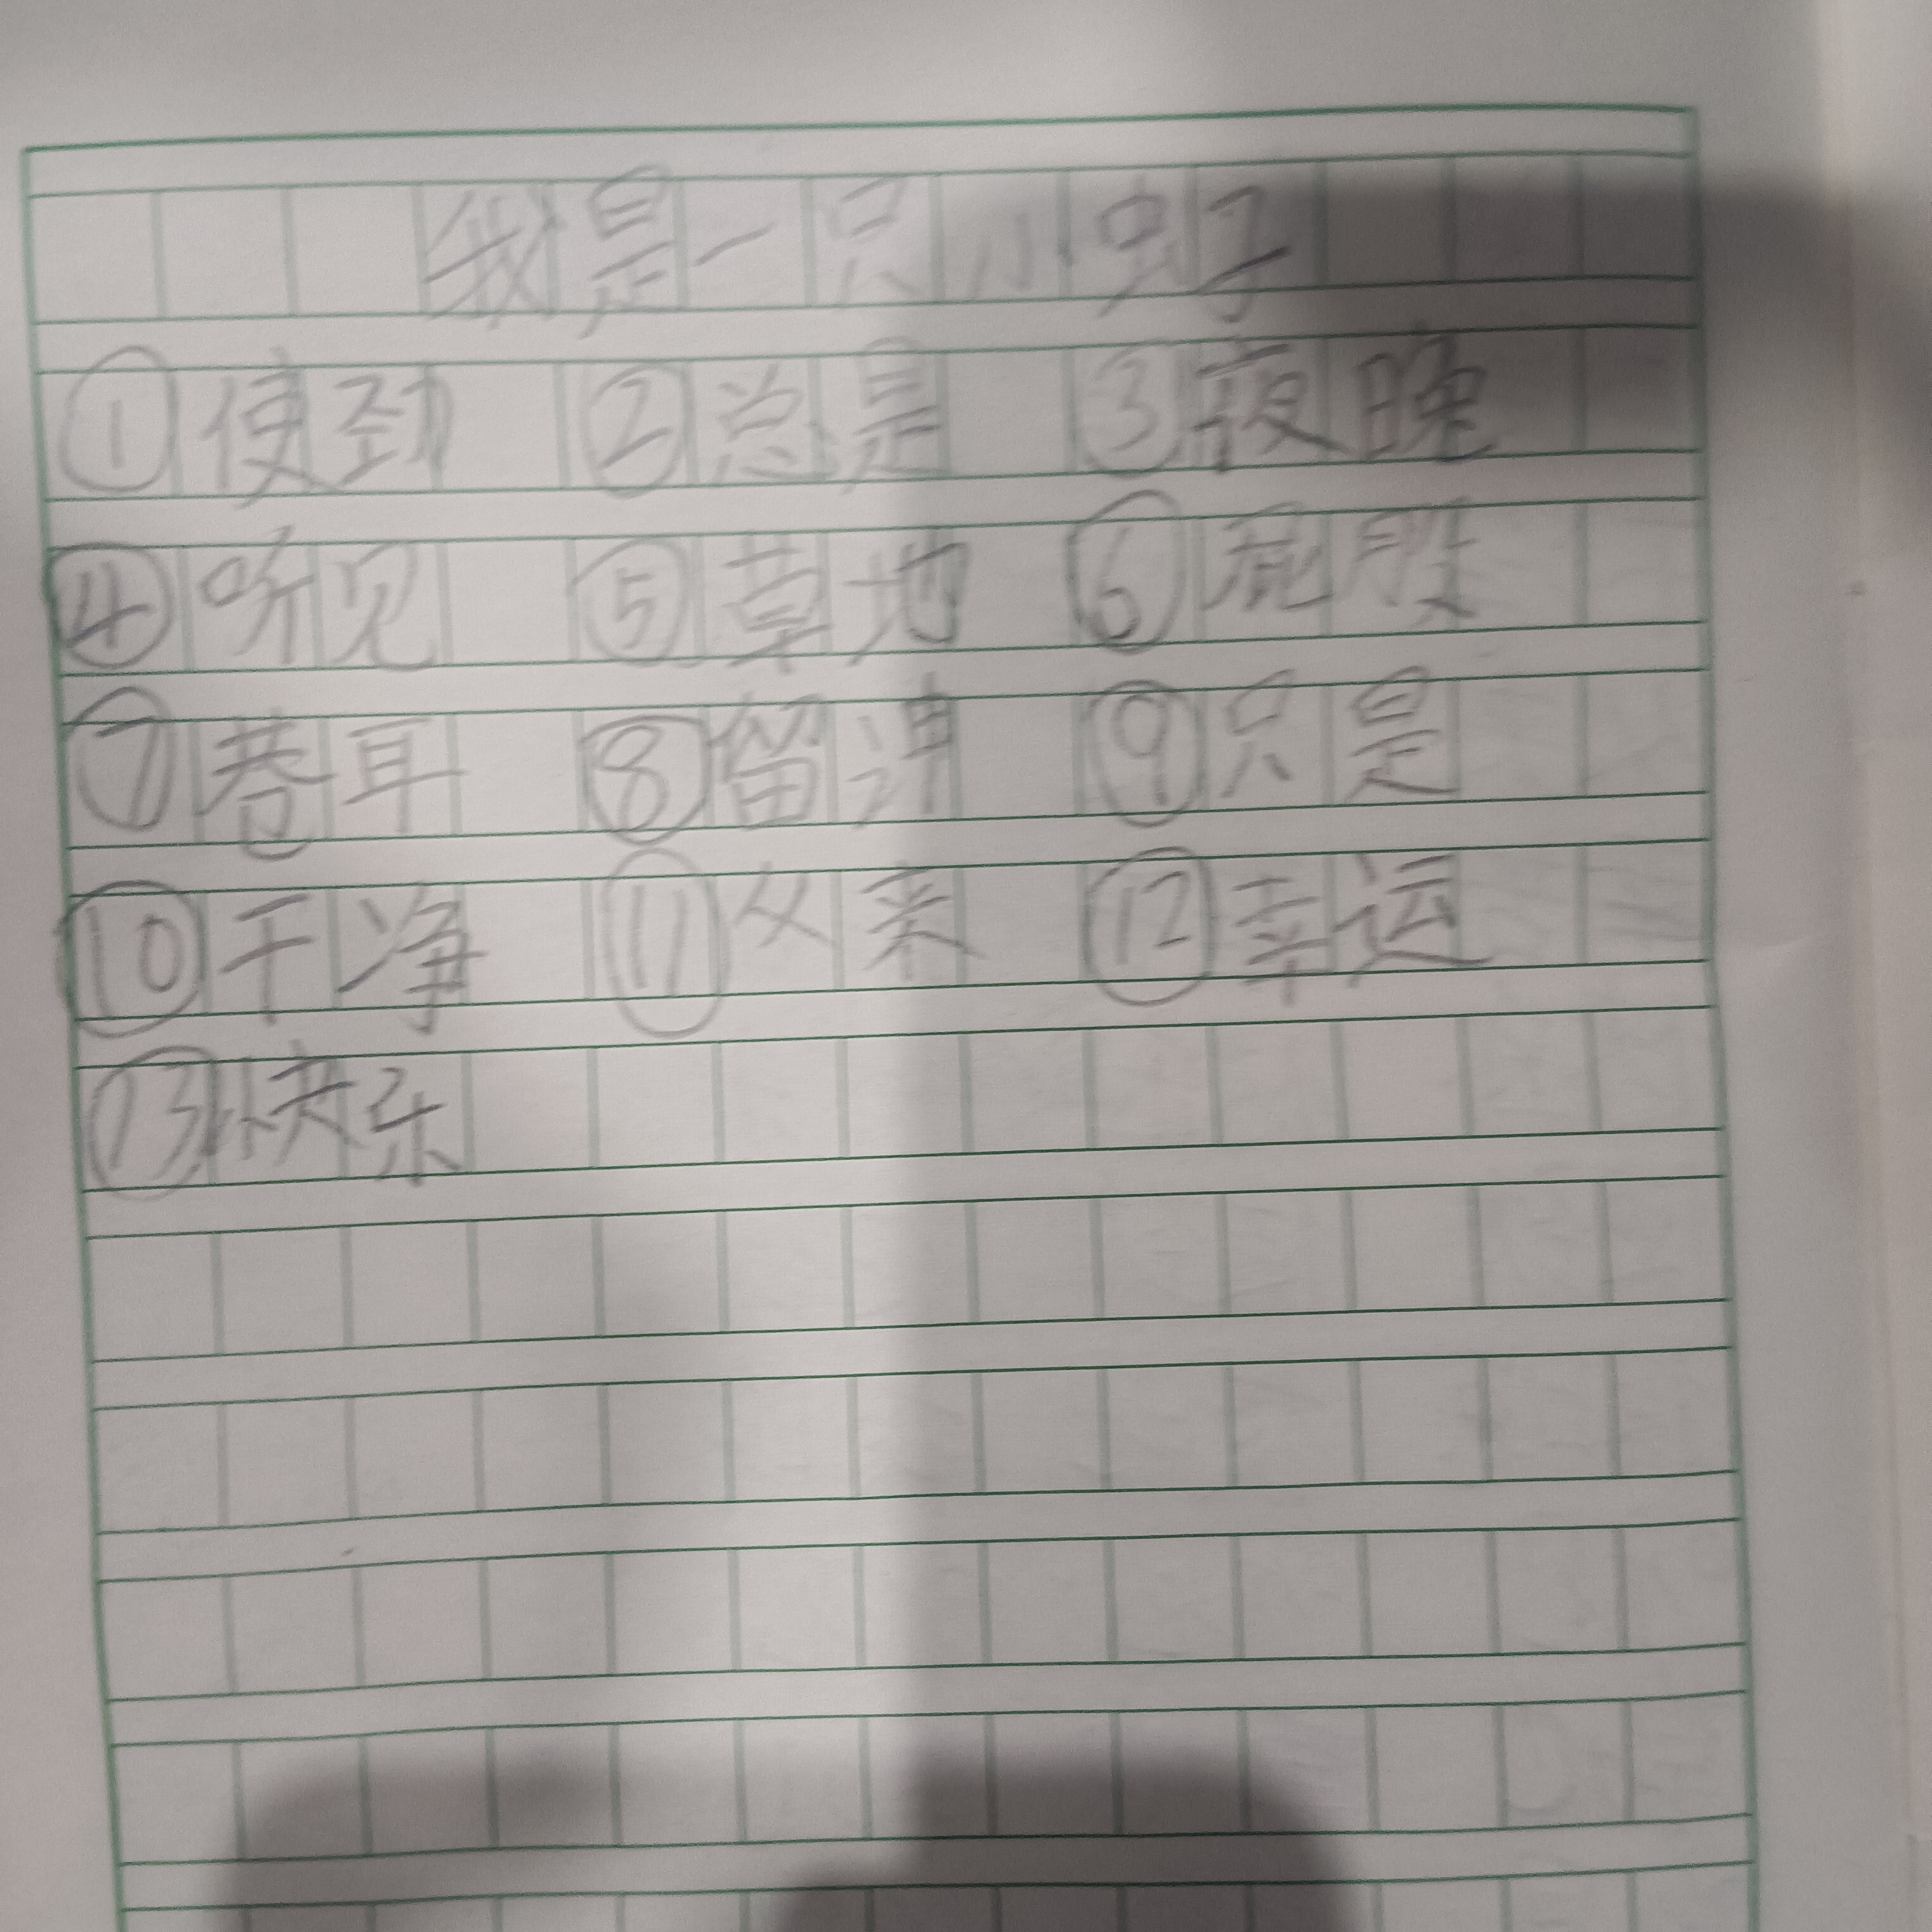 我是一只小虫子
①使劲 ②总是 ③夜晚
④听见 ⑤草地 ⑥屁股
⑦苍耳 ⑧留神 ⑨只是
⑩干净 ⑪从来 ⑫幸运
⑬快乐